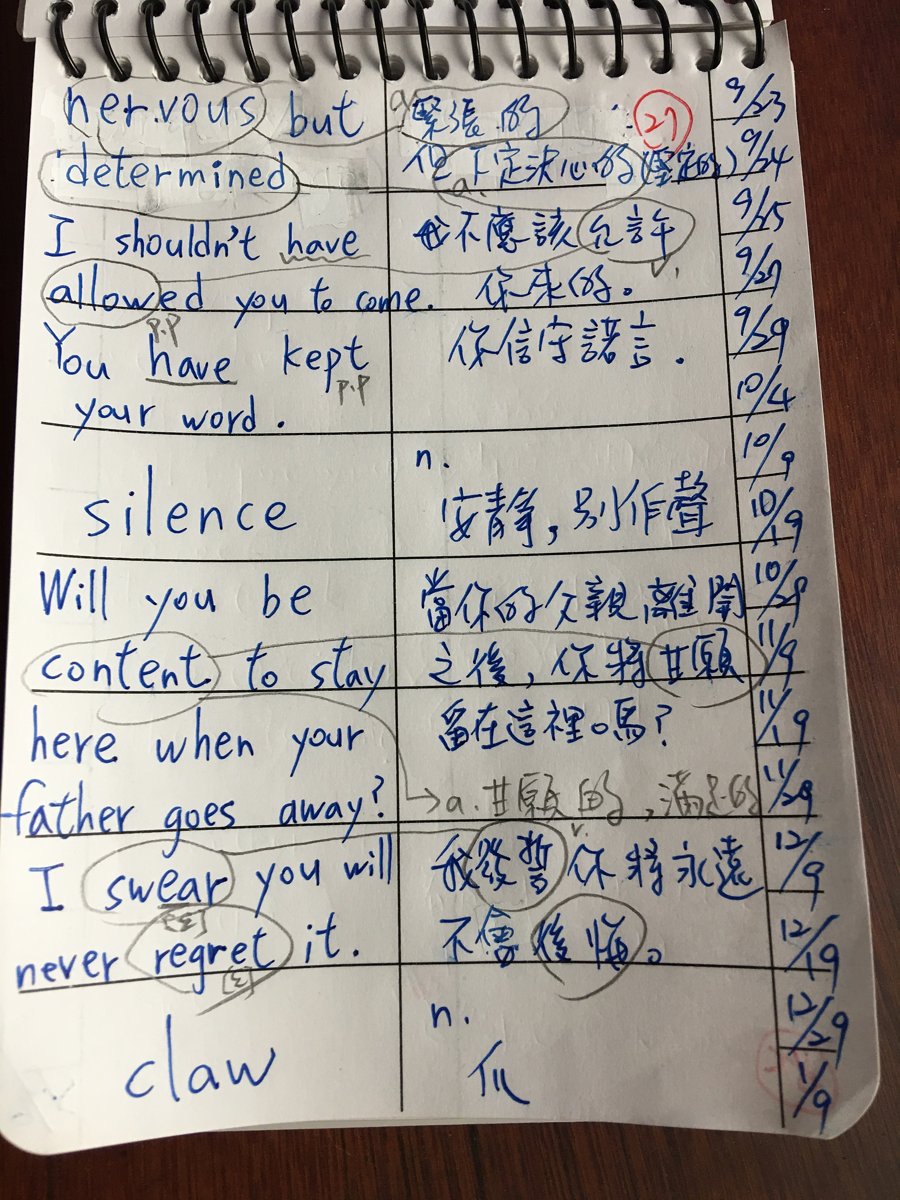 nervous but a. 緊張的 : 27 9/23
determined 但下定決心的(堅定的) a. 9/24
I shouldn't have 我不應該允許 9/25
allowed you to come. 你來的。 v. 9/27
p.p
You have kept 你信守諾言. 9/29
p.p
your word. 10/4
n. 10/9
silence 安靜,別作聲 10/19
Will you be 當你的父親離開 10/29
content to stay 之後,你將甘願 11/9
here when your 留在這裡嗎? 11/19
father goes away? → a.甘願的,滿足的 11/29
v.
I swear you will 我發誓你將永遠 12/9
[ɛ]
never regret it. 不會後悔。 12/19
[ɛ]
n. 12/29
claw 爪 1/9